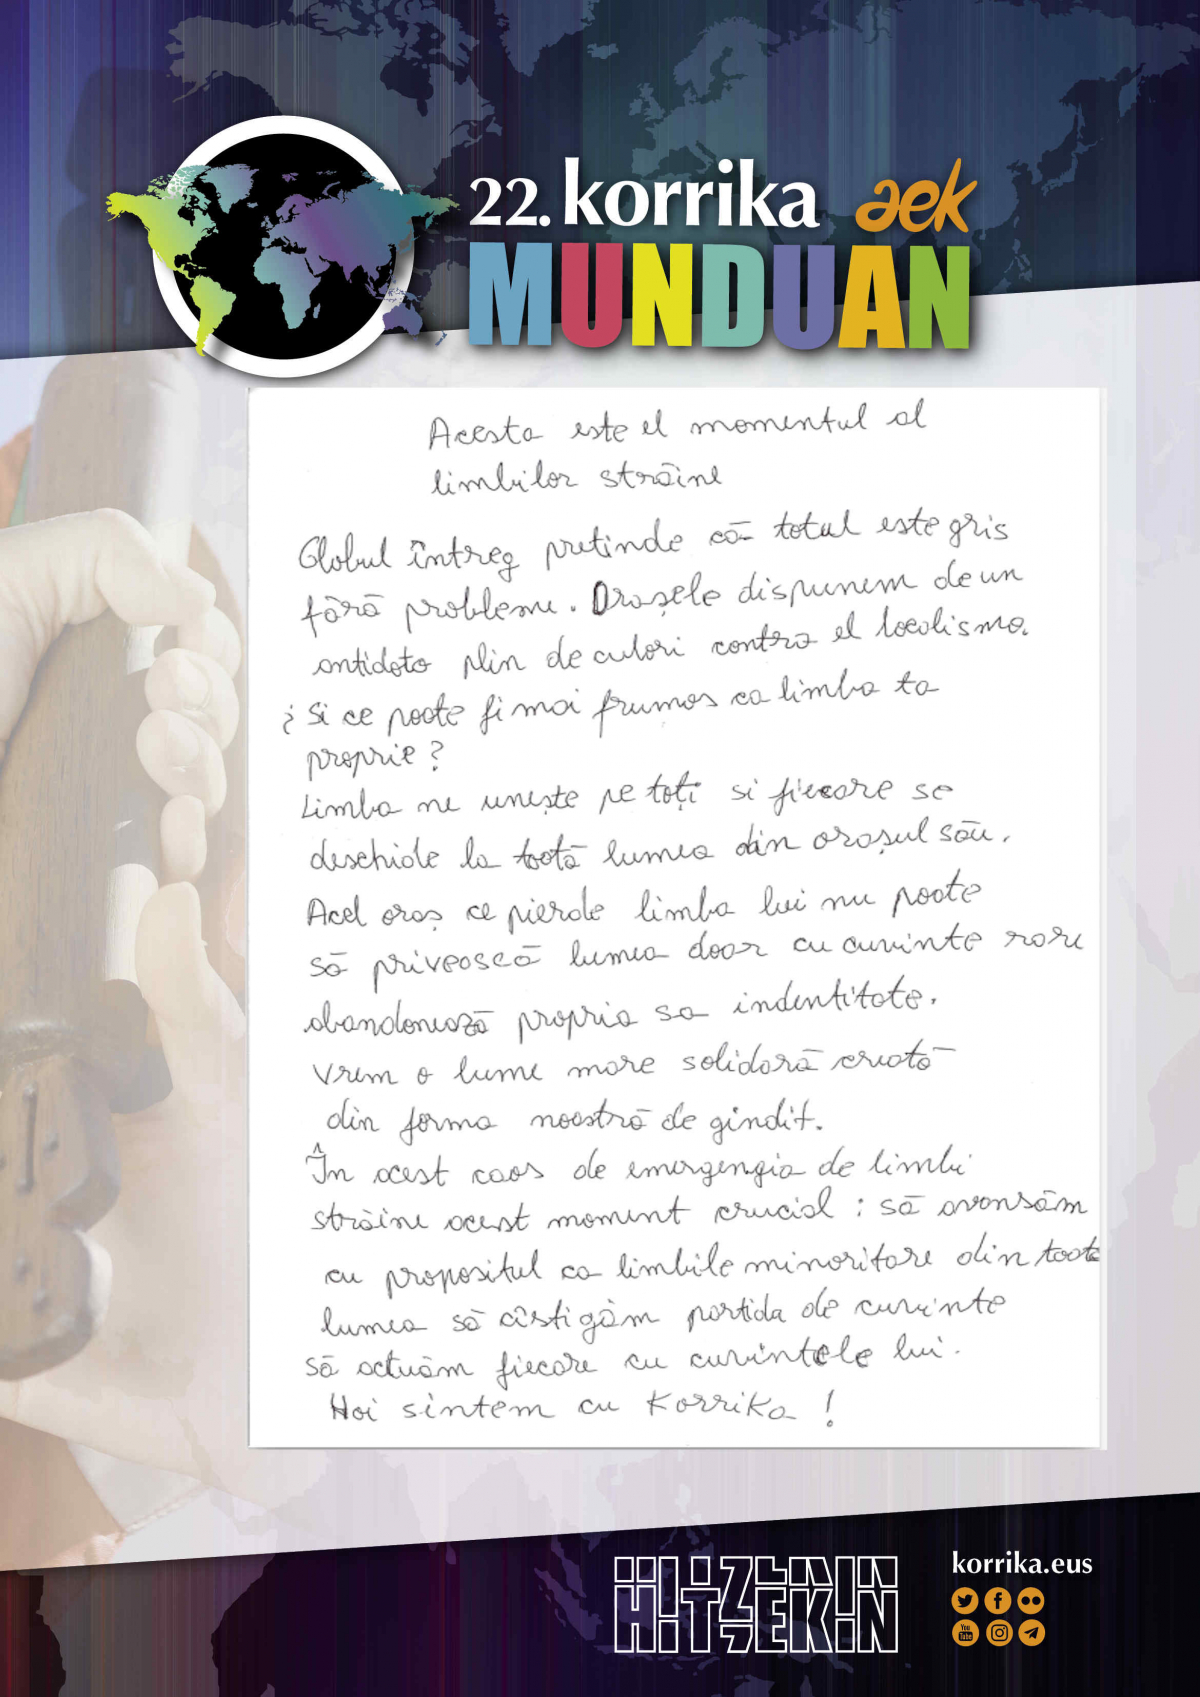 22. korrika aek
MUNDUAN
Acesta este el momentul al
limbilor străine
Globul întreg pretinde că totul este gris
fără probleme. Orașele dispunem de un
antidoto plin de culori contra el localismo.
¿ Si ce poate fi mai frumos ca limba ta
proprie?
Limba ne unește pe toți si fiecare se
deschide la toată lumea din orașul său.
Acel oraș ce pierde limba lui nu poate
să privească lumea doar cu cuvinte rare
abandonează propria sa indentitate.
Vrem o lume mare solidară creată
din forma noastră de gindit.
În acest caos de emergengia de limbi
străine acest moment crucial : să avansăm
cu propositul ca limbile minoritare din toată
lumea să cîstigăm partida de cuvinte
să actuăm fiecare cu cuvintele lui.
Hoi sintem cu Korrika !
HITZEKIN
korrika.eus
You
Tube